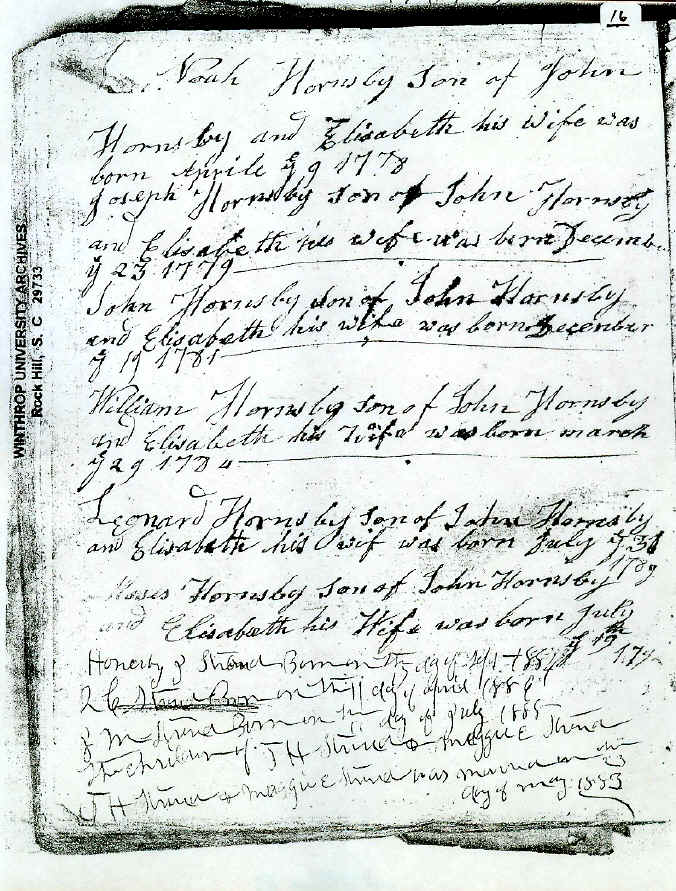 16
Noah Hornsby son of John
Hornsby and Elisabeth his wife was
born Aprile ye 9 1778
Joseph Hornsby son of John Hornsby
and Elisabeth his wife was born Decembe
ye 23 1779
John Hornsby son of John Hornsby
and Elisabeth his wife was born December
ye 19 1781
William Hornsby son of John Hornsby
and Elisabeth his Wife was born march
ye 29 1784
Leonard Hornsby son of John Hornsby
and Elisabeth his wif was born July ye 31
1789
Moses Hornsby son of John Hornsby
and Elisabeth his Wife was born July
179
Born on the day of 188
on the 11 day of april 1886
J M Born on the day of July 1885
the children of J H & Maggie E
J H & Maggie E was married on the
23
day of may 1883
WINTHROP UNIVERSITY ARCHIVES
Rock Hill, S. C 29733